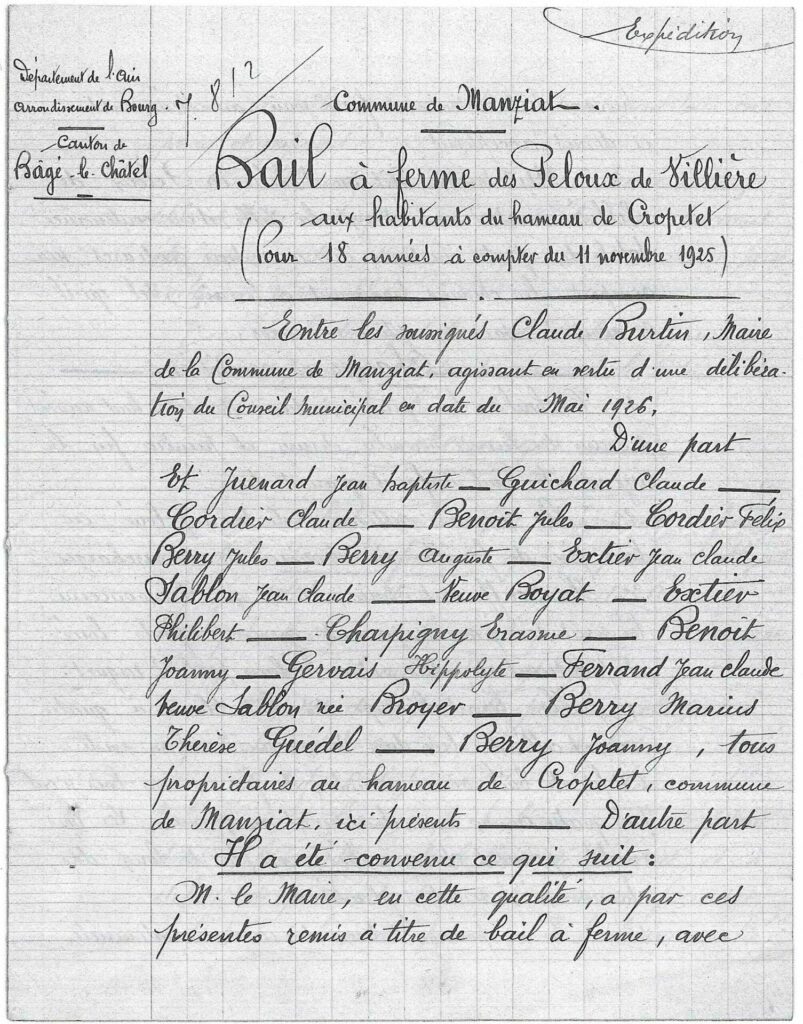 Expédition
Département de l'Ain
arrondissement de Bourg.
Canton de
Bâgé-le-Châtel
7.812
Commune de Manziat.
Bail à ferme des Peloux de Villière
aux habitants du hameau de Cropetet
(Pour 18 années à compter du 11 novembre 1925)
Entre les soussignés Claude Burtin, Maire
de la Commune de Manziat, agissant en vertu d'une délibéra-
tion du Conseil Municipal en date du Mai 1926,
D'une part
Et Juenard Jean baptiste — Guichard Claude —
Cordier Claude — Benoit Jules — Cordier Félix
Berry Jules — Berry Auguste — Extier Jean Claude
Sablon Jean Claude — Veuve Boyat — Extier
Philibert — Charpigny Erasme — Benoit
Joanny — Gervais Hippolyte — Ferrand Jean Claude
Veuve Sablon née Broyer — Berry Marius
Thérèse Guédel — Berry Joanny, tous
propriétaires au hameau de Cropetet, commune
de Manziat, ici présents — D'autre part
Il a été convenu ce qui suit :
M. le Maire, en cette qualité, a par ces
présentes remis à titre de bail à ferme, avec